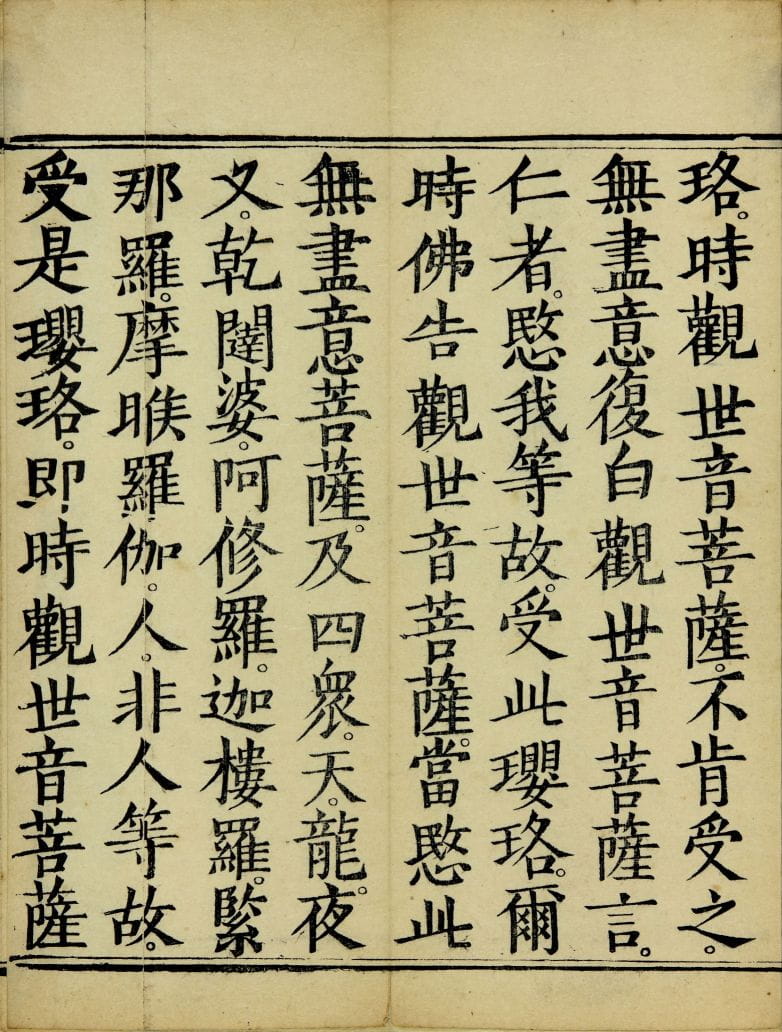 珞。時觀世音菩薩。不肯受之。
無盡意復白觀世音菩薩言。
仁者。愍我等故。受此瓔珞。爾
時佛告觀世音菩薩。當愍此
無盡意菩薩。及四眾。天。龍。夜
叉。乾闥婆。阿修羅。迦樓羅。緊
那羅。摩睺羅伽。人。非人等故。
受是瓔珞。即時觀世音菩薩